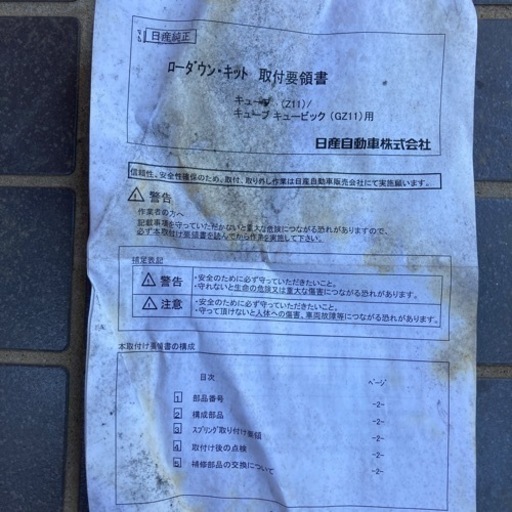 日産純正
ローダウン・キット 取付要領書
キューブ (Z11)/
キューブ キュービック (GZ11)用
日産自動車株式会社
信頼性、安全性確保のため、取付、取り外し作業は日産自動車販売会社にて実施願います。
警告
作業者の方へ
記載事項を守っていただかないと重大な危険につながる恐れがありますので、
必ず本取付け要領書を読んでから作業を実施して下さい。
補足表記
警告
・安全のために必ず守っていただきたいこと。
・守れないと生命の危険又は重大な傷害につながる恐れがあります。
注意
・安全のために必ず守っていただきたいこと。
・守って頂けないと人体への傷害、車両故障等につながる恐れがあります。
本取付け要領書の構成
目次 ページ
1 部品番号 -2-
2 構成部品 -2-
3 スプリング取り付け要領 -2-
4 取付け後の点検 -2-
5 補修部品の交換について -2-